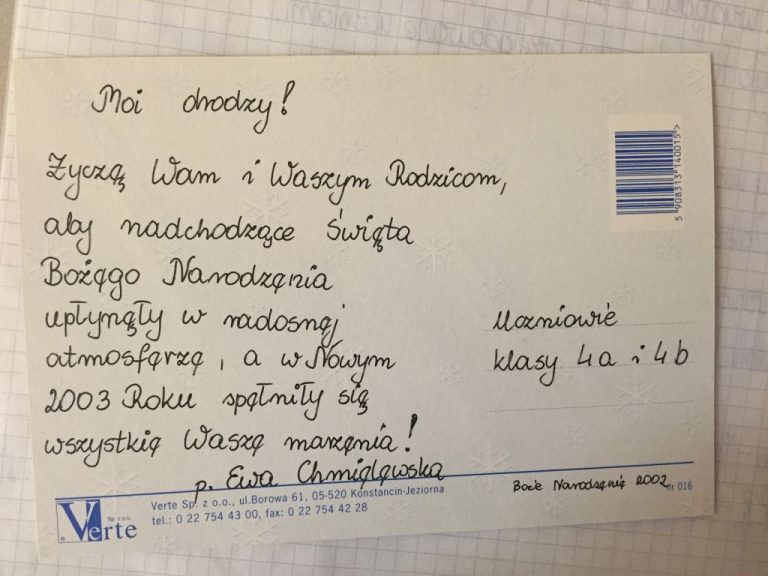 Moi drodzy!
Życzę Wam i Waszym Rodzicom,
aby nadchodzące Święta
Bożego Narodzenia
upłynęły w radosnej
atmosferze, a w Nowym
2003 Roku spełniły się
wszystkie Wasze marzenia!
p. Ewa Chmielewska
5 908313 140015 >
Uczniowie
klasy 4a i 4b
Boże Narodzenie 2002
nr 016
Verte Sp. z o.o.
Verte Sp. z o.o., ul.Borowa 61, 05-520 Konstancin-Jeziorna
tel.: 0 22 754 43 00, fax: 0 22 754 42 28